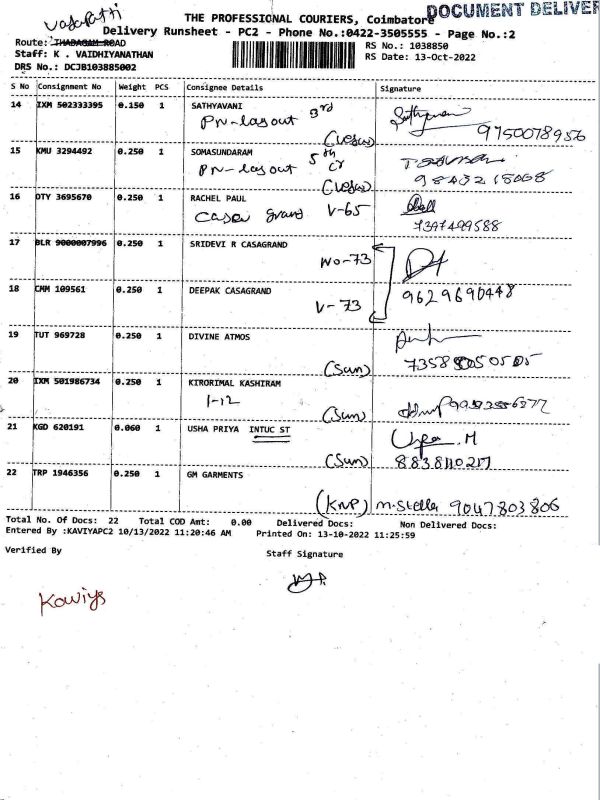 DOCUMENT DELIVER
THE PROFESSIONAL COURIERS, Coimbatore
Delivery Runsheet - PC2 - Phone No.:0422-3505555 - Page No.:2
Route: THADAGAM ROAD
RS No.: 1038850
Staff: K . VAIDHIYANATHAN
RS Date: 13-Oct-2022
DRS No.: DCJB103885002
S No Consignment No Weight PCS Consignee Details Signature
14 IXM 502333395 0.150 1 SATHYAVANI
PN-layout 3rd
9750078956
15 KMU 3294492 0.250 1 SOMASUNDARAM
PN-layout 5th cr
16 OTY 3695670 0.250 1 RACHEL PAUL
Casa grand V-65
7397499588
17 BLR 9000007996 0.250 1 SRIDEVI R CASAGRAND
NO-73
18 CMM 109561 0.250 1 DEEPAK CASAGRAND
9629690448
V-73
19 TUT 969728 0.250 1 DIVINE ATMOS
(Sun)
20 IXM 501986734 0.250 1 KIRORIMAL KASHIRAM
1-12
(Sun)
21 KGD 620191 0.060 1 USHA PRIYA INTUC ST
Usha . M
(Sun) 8838110217
22 TRP 1946356 0.250 1 GM GARMENTS
(KNP) M.Stella 9047803806
Total No. Of Docs: 22 Total COD Amt: 0.00 Delivered Docs: Non Delivered Docs:
Entered By :KAVIYAPC2 10/13/2022 11:20:46 AM Printed On: 13-10-2022 11:25:59
Verified By Staff Signature
Kaviya